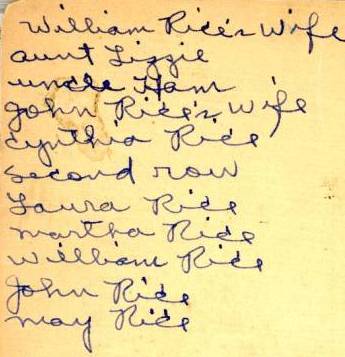 William Rice's Wife
aunt Lizzie
uncle Ham
John Rice's Wife
Cynthia Rice
second row
Laura Rice
martha Rice
William Rice
John Rice
may Rice